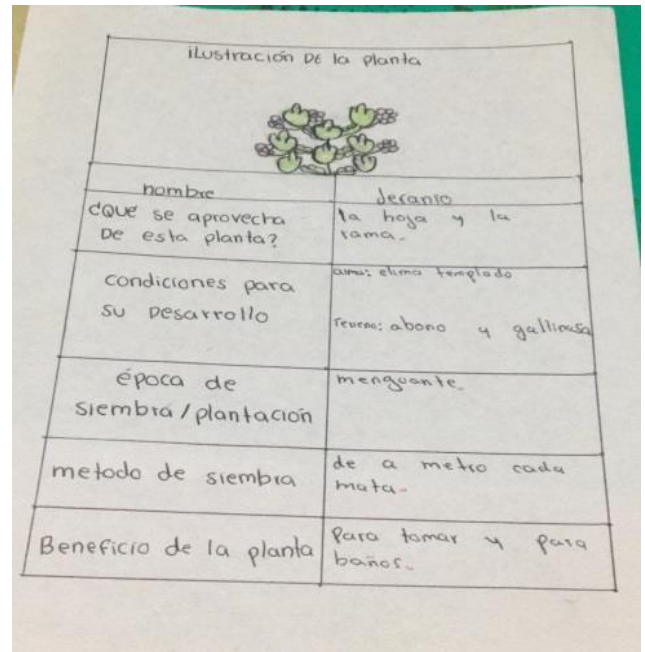 ilustración DE la planta
nombre
jeranio
¿QUE se aprovecha
DE esta planta?
la hoja y la
rama.
condiciones para
su Desarrollo
clima templado
abono y gallinasa
época de
siembra/plantación
menguante.
metodo de siembra
de a metro cada
mata.
Beneficio de la planta
Para tomar y para
baños.